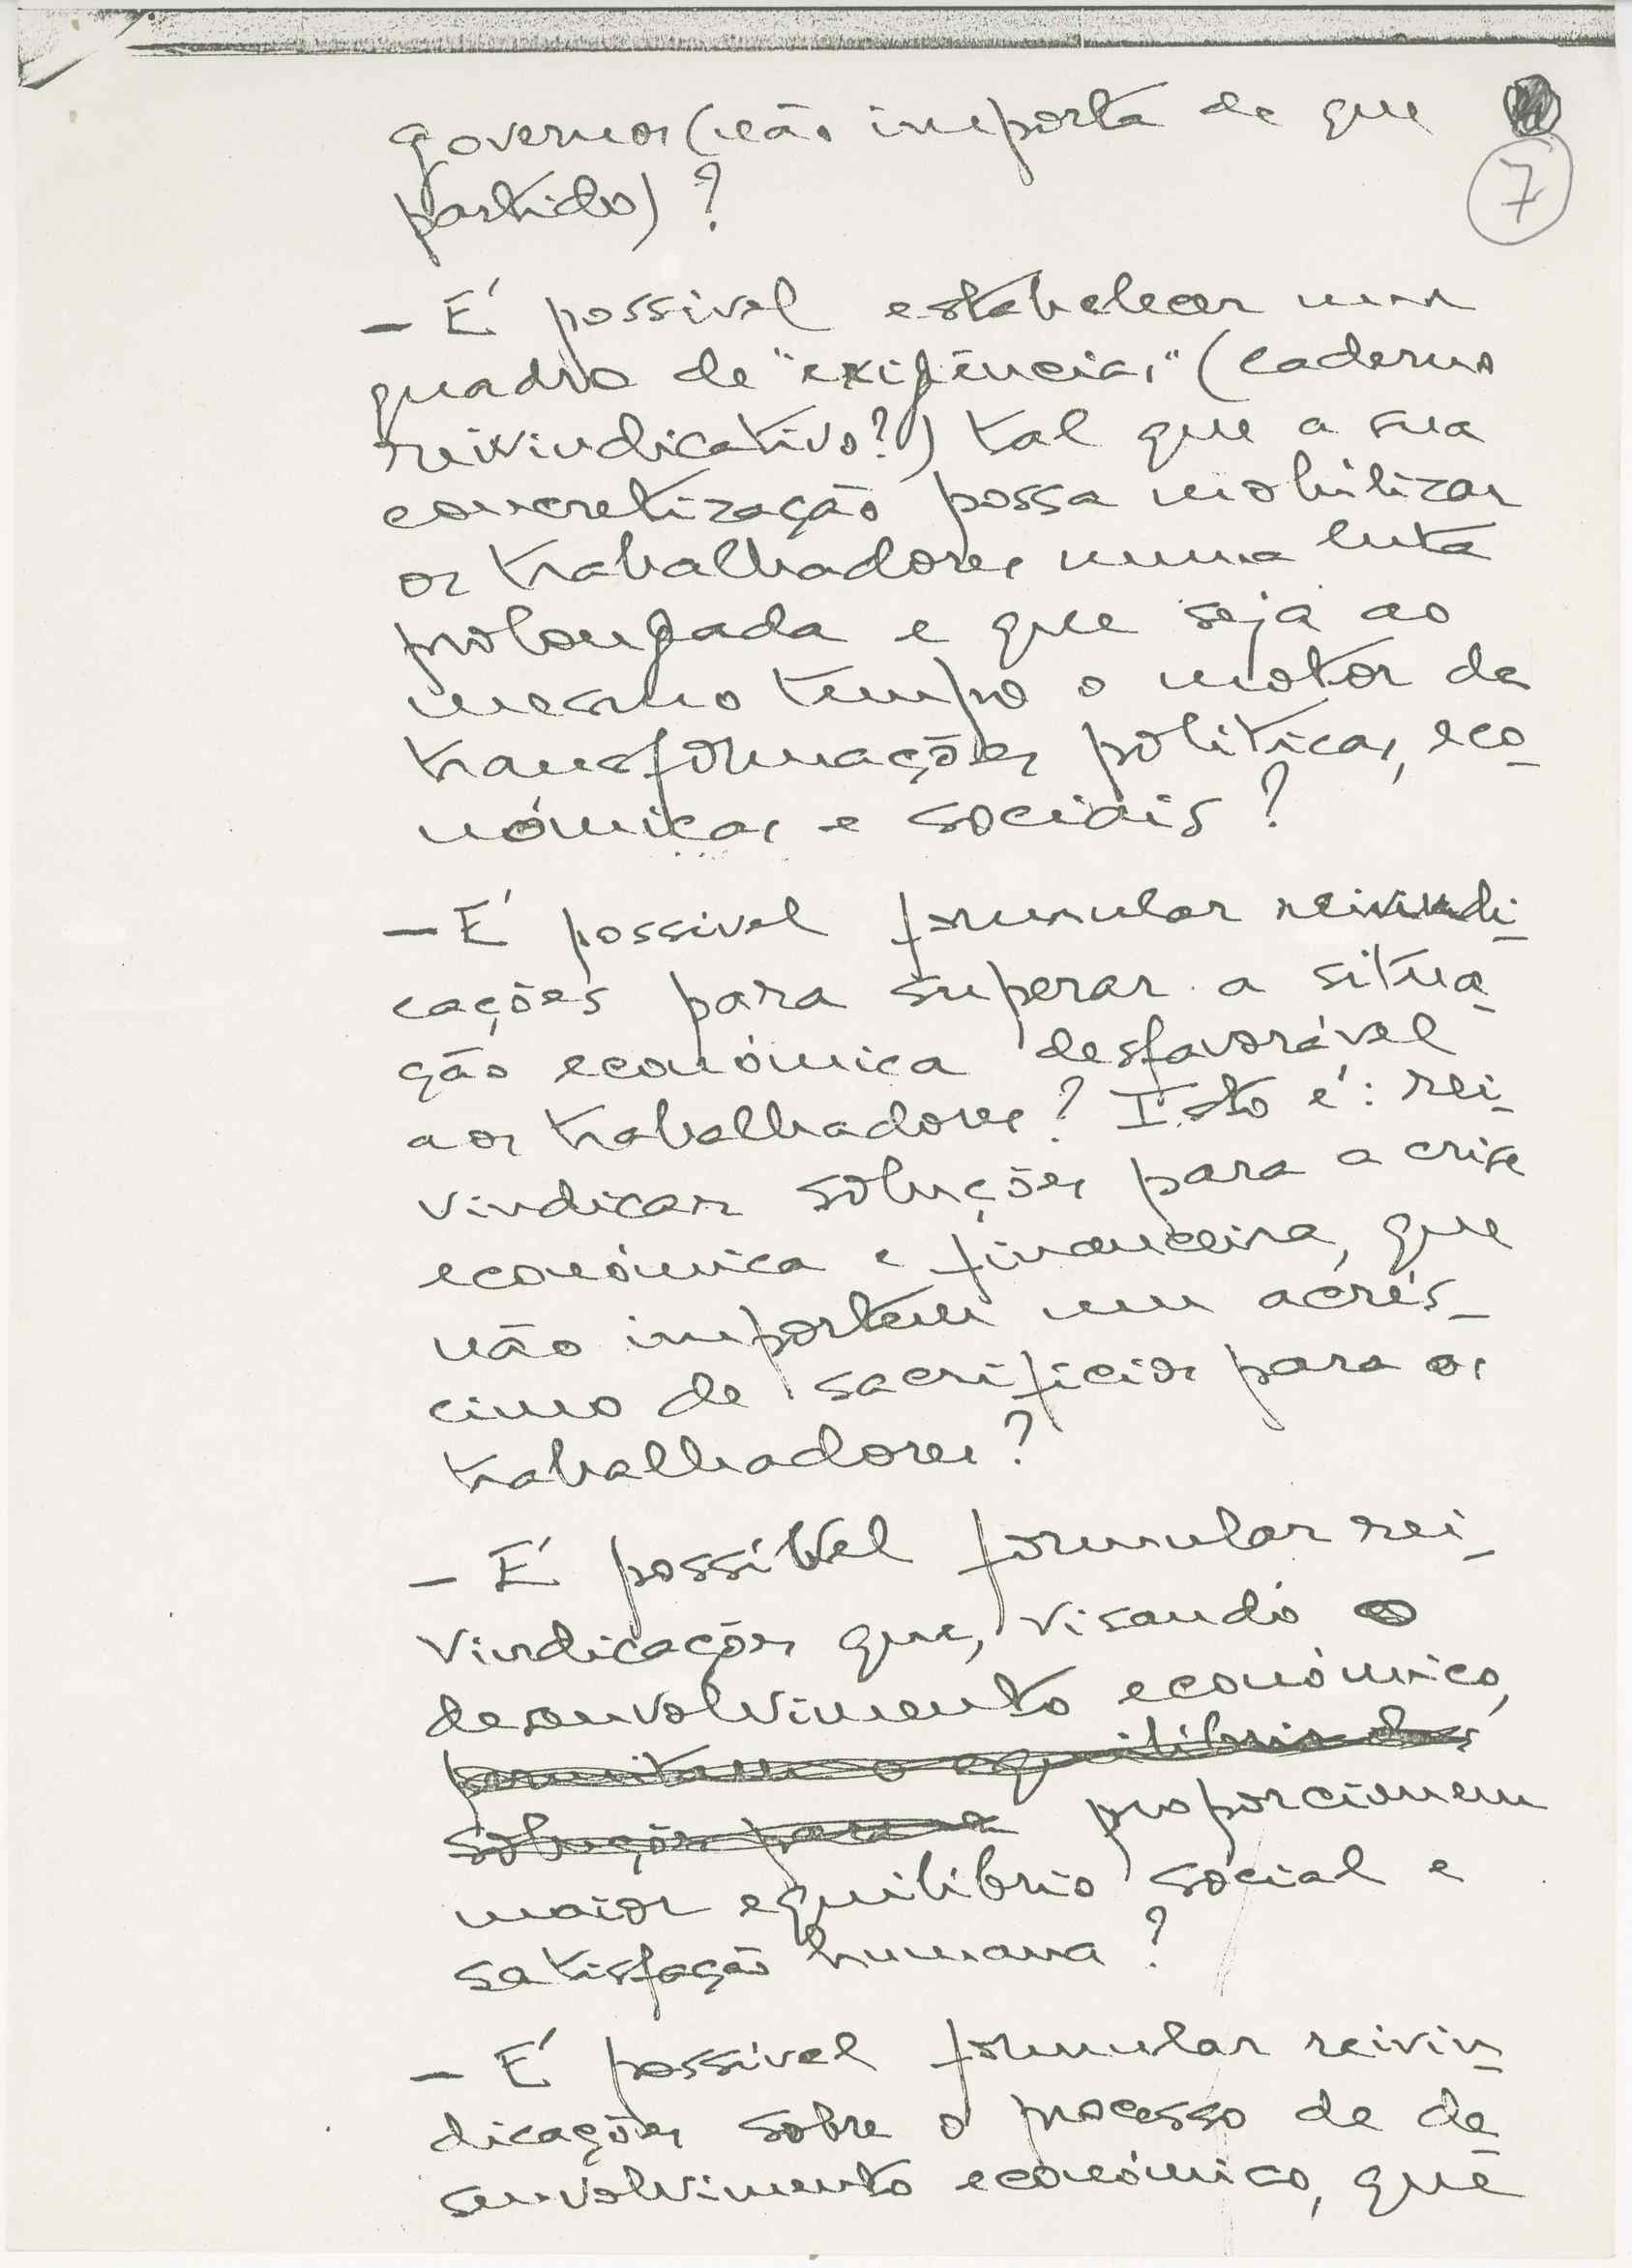 governos (não importa de que
7
partido)?
- É possivel estabelecer um
quadro de "exigências" (caderno
reivindicativo?) tal que a sua
concretização possa mobilizar
os trabalhadores numa luta
prolongada e que seja ao
mesmo tempo o motor de
transformações politicas, eco-
nómicas e sociais?
- É possivel formular reivindi-
cações para superar a situa-
ção económica desfavorável
aos trabalhadores? Isto é: rei-
vindicar soluções para a crise
económica e financeira, que
não importem um acrés-
cimo de sacrificios para os
trabalhadores?
- É possível formular rei-
vindicações que, visando o
desenvolvimento económico,
permitam o equilibrio das
soluções para a proporcionem
maior equilíbrio social e
satisfação humana?
- É possível formular reivin-
dicações sobre o processo de de-
senvolvimento económico, que